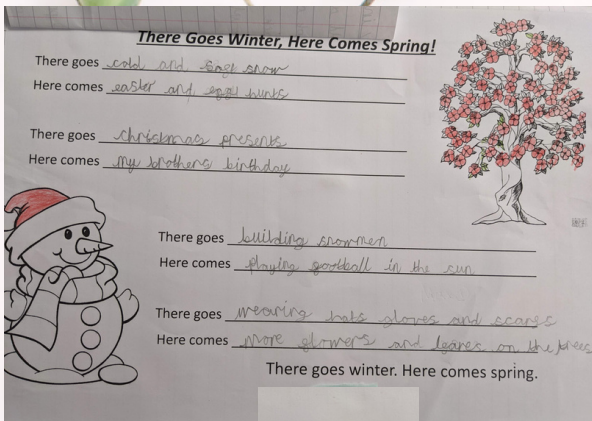 There Goes Winter, Here Comes Spring!
There goes cold and snow
Here comes easter and egg hunts
There goes christmas presents
Here comes my brothers birthday
There goes building snowmen
Here comes playing football in the sun
There goes wearing hats gloves and scarfes
Here comes more flowers and leaves on the trees
There goes winter. Here comes spring.